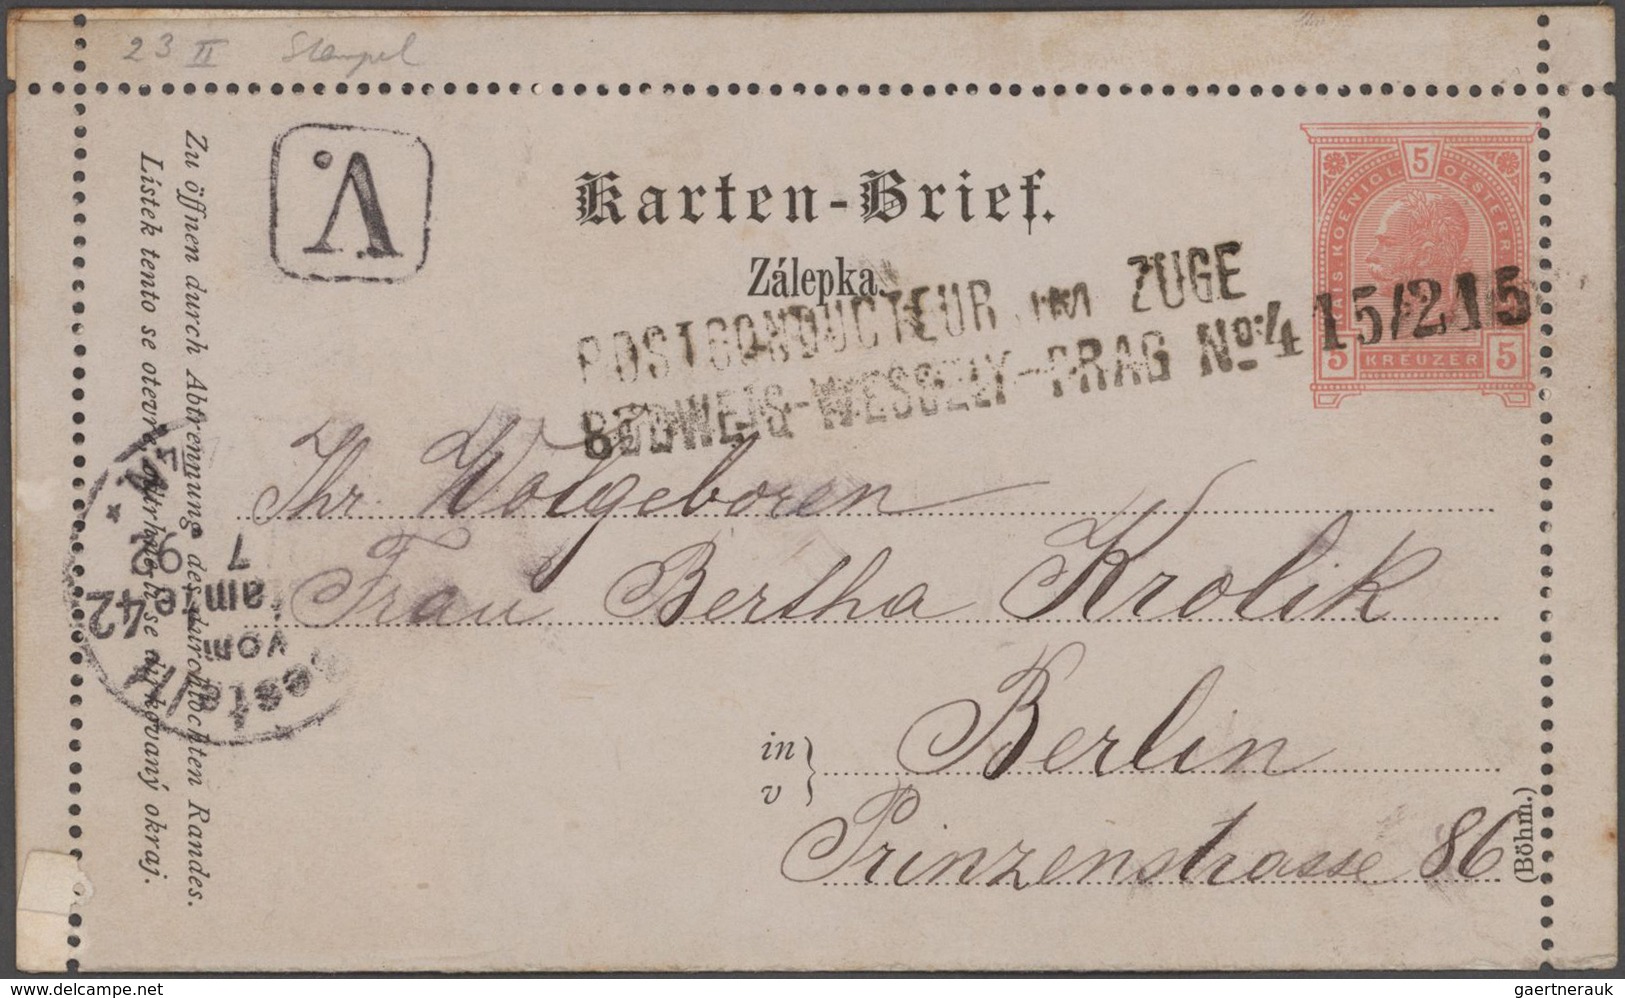 23 II Stempel
V.
Karten-Brief.
Zálepka.
KAIS. KOENIGL. OESTERR.
5
5 KREUZER 5
POSTCONDUCTEUR IM ZUGE
BUDWEIS-WESSELY-PRAG No:4 15/2 15
Zu öffnen durch Abtrennung des durchlochten Randes.
Lístek tento se otevře, odtrhne-li se dírkovaný okraj.
Bestellt
vom
Postamte 42
7 92
Ihr Wolgeboren
Frau Bertha Krolik
in
v
Berlin
Prinzenstrasse 86
(Böhm.)
www.delcampe.net
gaertnerauk